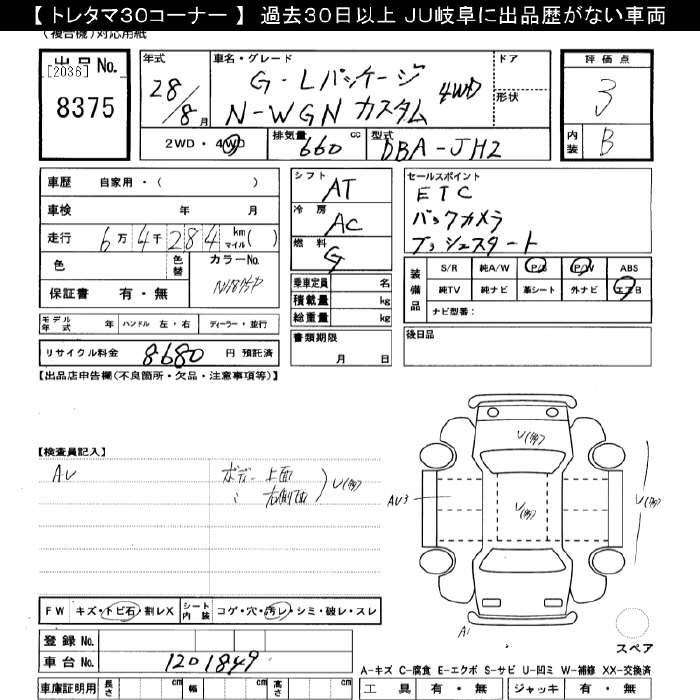 【 トレタマ30コーナー 】 過去30日以上 JU岐阜に出品歴がない車両
(複合機)対応用紙
出品 No.
[2036]
8375
年式
28/8月
車名・グレード
G-Lパッケージ
N-WGN カスタム 4WD
ドア
形状
評価点
3
内装 B
2WD・4WD
排気量 660 cc
型式 DBA-JH2
車歴 自家用・( )
車検 年 月
走行 6万4千284 km マイル( )
色 色替 カラーNo.
保証書 有・無
シフト AT
冷房 AC
燃料 G
乗車定員 名
積載量 kg
総重量 kg
セールスポイント
ETC
バックカメラ
プッシュスタート
装備品
S/R 純A/W P/S P/W ABS
純TV 純ナビ 革シート 外ナビ エアB
ナビ型番:
モデル年式 年 ハンドル 左・右 ディーラー・並行
書類期限 月 日
後日品
リサイクル料金 8680 円 預託済
【出品店申告欄(不良箇所・欠品・注意事項等)】
【検査員記入】
AU
ボディー上面
〃 右側面
U(多)
U(多)
AU3
U(多)
U(多)
FW キズ・トビ石・割レX シート内装 コゲ・穴・汚レ・シミ・破レ・スレ
スペア
登録 No.
車台 No. 1201849
A-キズ C-腐食 E-エクボ S-サビ U-凹ミ W-補修 XX-交換済
車庫証明用 長さ cm 幅 cm 高さ cm
工具 有・無 ジャッキ 有・無